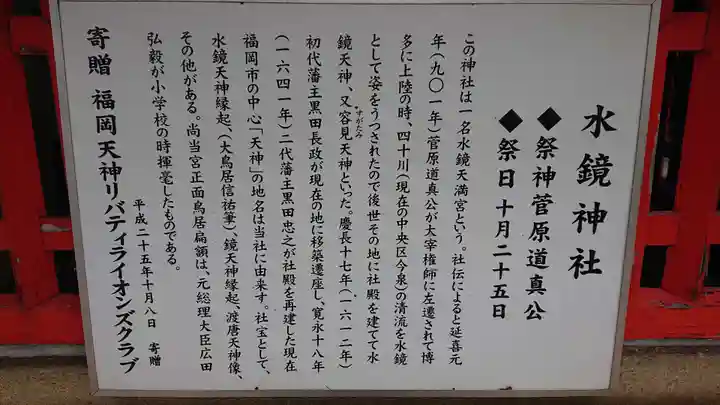 水鏡神社
◆祭神菅原道真公
◆祭日 十月二十五日
この神社は一名水鏡天満宮という。社伝によると延喜元
年（九〇一年）菅原道真公が太宰権師に左遷されて博
多に上陸の時、四十川（現在の中央区今泉）の清流を水鏡
として姿をうつされたので後世その地に社殿を建てて水
鏡天神、又容見天神といった。慶長十七年（一六一二年）
すがたみ
初代藩主黒田長政が現在の地に移築遷座し、寛永十八年
（一六四一年）二代藩主黒田忠之が社殿を再建した現在
福岡市の中心「天神」の地名は当社に由来す。社宝として、
水鏡天神縁起、（大鳥居信祐筆）、鏡天神縁起、渡唐天神像、
その他がある。尚当宮正面鳥居扁額は、元総理大臣広田
弘毅が小学校の時揮毫したものである。
平成二十五年十月八日 寄贈
寄贈 福岡天神リバティライオンズクラブ